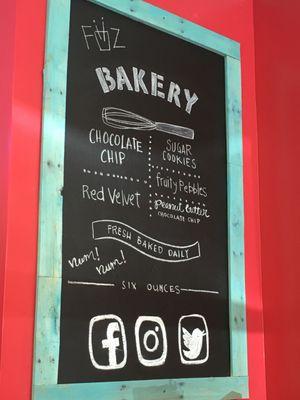 FUZ
BAKERY
CHOCOLATE
CHIP
SUGAR
COOKIES
Red Velvet
fruity Pebbles
Peanut butter
CHOCOLATE CHIP
FRESH BAKED DAILY
num!
num!
SIX OUNCES